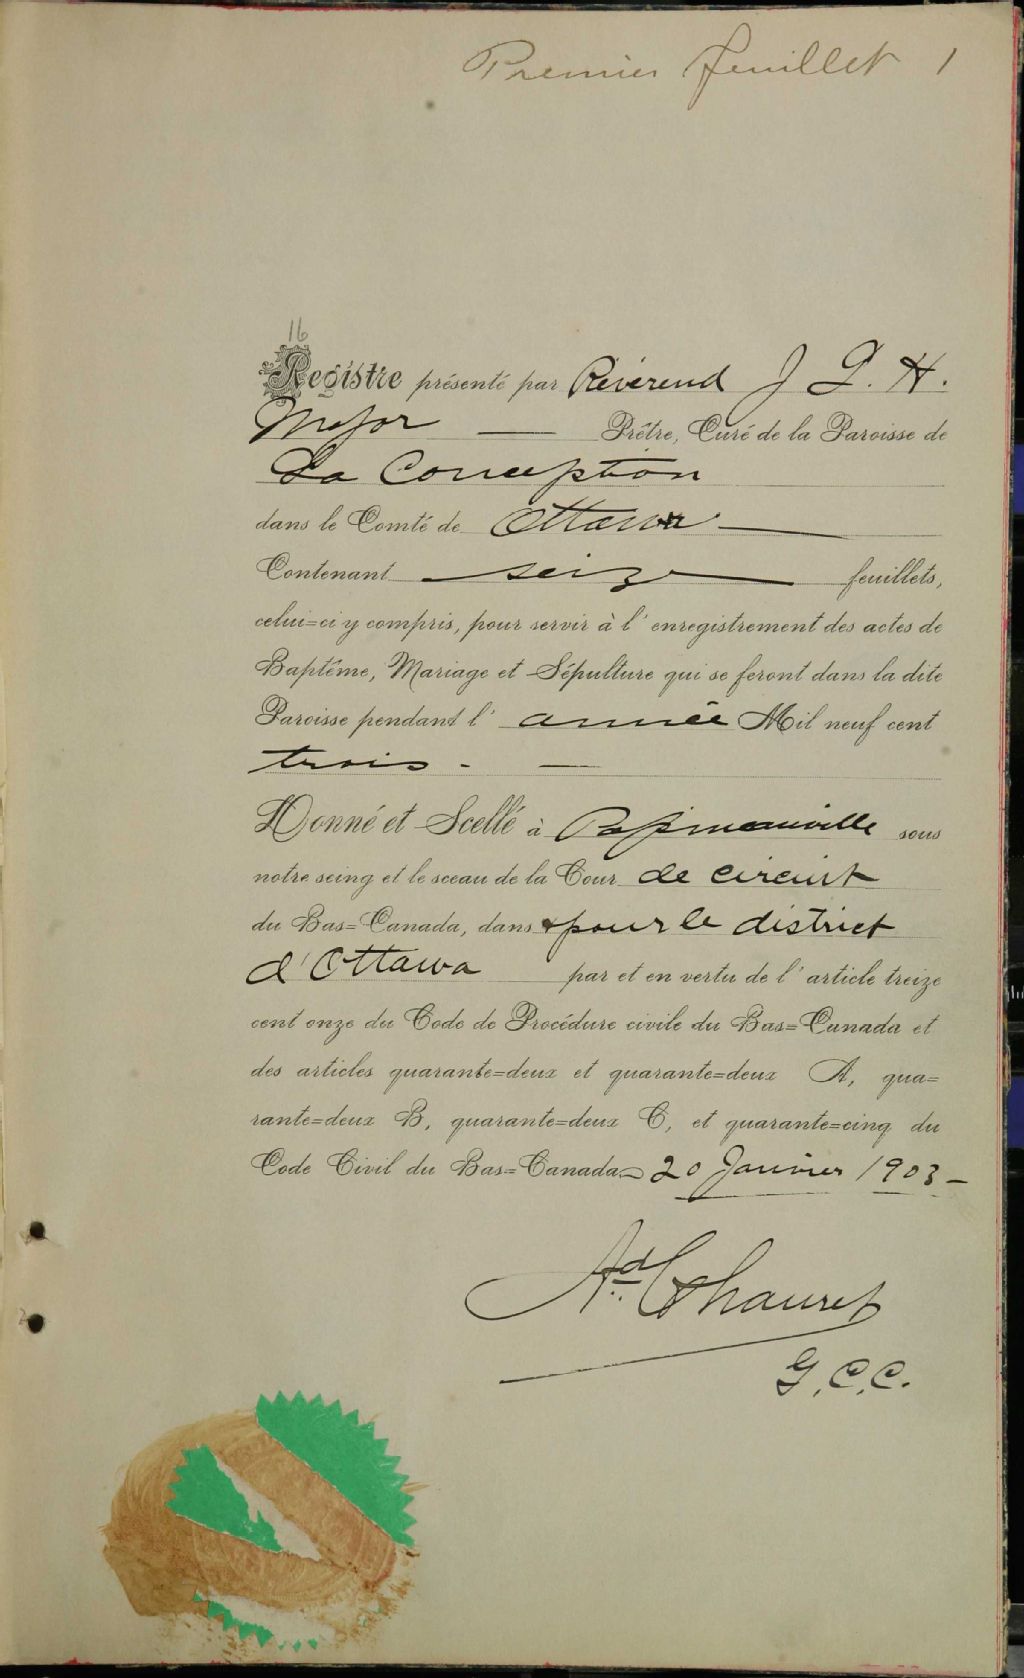 Premier feuillet 1
16
Registre présenté par Révérend J G. H.
Major Prêtre, Curé de la Paroisse de
La Conception
dans le Comté de Ottawa
Contenant seize feuillets,
celui=ci y compris, pour servir à l'enregistrement des actes de
Baptême, Mariage et Sépulture qui se feront dans la dite
Paroisse pendant l'année Mil neuf cent
trois. —
Donné et Scellé à Papineauville sous
notre seing et le sceau de la Cour de circuit
du Bas=Canada, dans & pour le district
d'Ottawa par et en vertu de l'article treize
cent onze du Code de Procédure civile du Bas=Canada et
des articles quarante=deux et quarante=deux A, qua=
rante=deux B, quarante=deux C, et quarante=cinq du
Code Civil du Bas=Canada 20 Janvier 1903 —
Ad. Chauret
G.C.C.